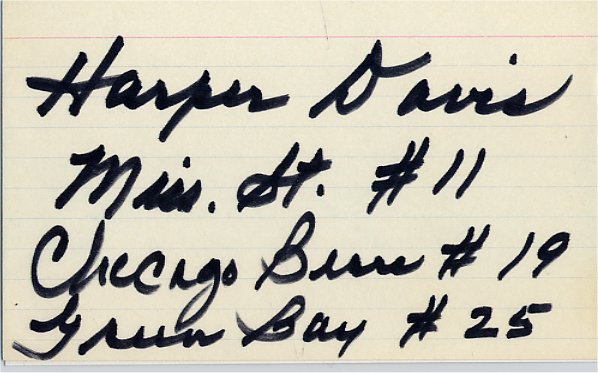 Harper Davis
Miss. St. #11
Chicago Bears #19
Green Bay #25